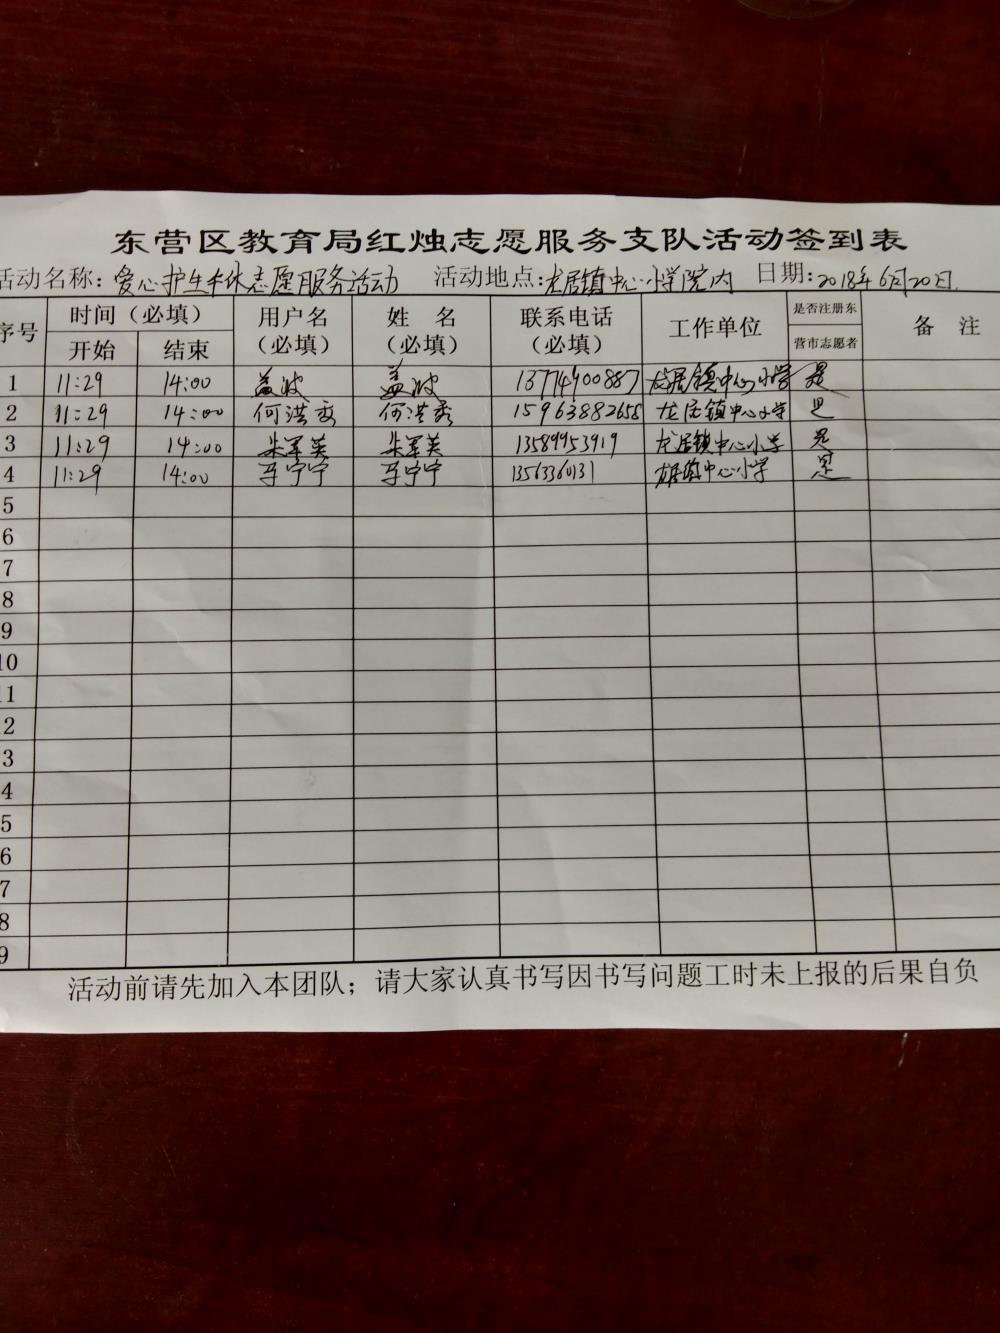 东营区教育局红烛志愿服务支队活动签到表
活动名称：爱心护生午休志愿服务活动 活动地点：龙居镇中心小学院内 日期：2018年6月20日.
序号 时间（必填） 用户名（必填） 姓 名（必填） 联系电话（必填） 工作单位 是否注册东营市志愿者 备 注
开始 结束
1 11:29 14:00 盖波 盖波 13774900887 龙居镇中心小学 是
2 11:29 14:00 何洪秀 何洪秀 15963882658 龙居镇中心小学 是
3 11:29 14:00 朱军美 朱军美 13589953919 龙居镇中心小学 是
4 11:29 14:00 宁宁 宁宁 龙居镇中心小学 是
5
6
7
8
9
10
11
2
3
4
5
6
7
8
9
活动前请先加入本团队；请大家认真书写因书写问题工时未上报的后果自负